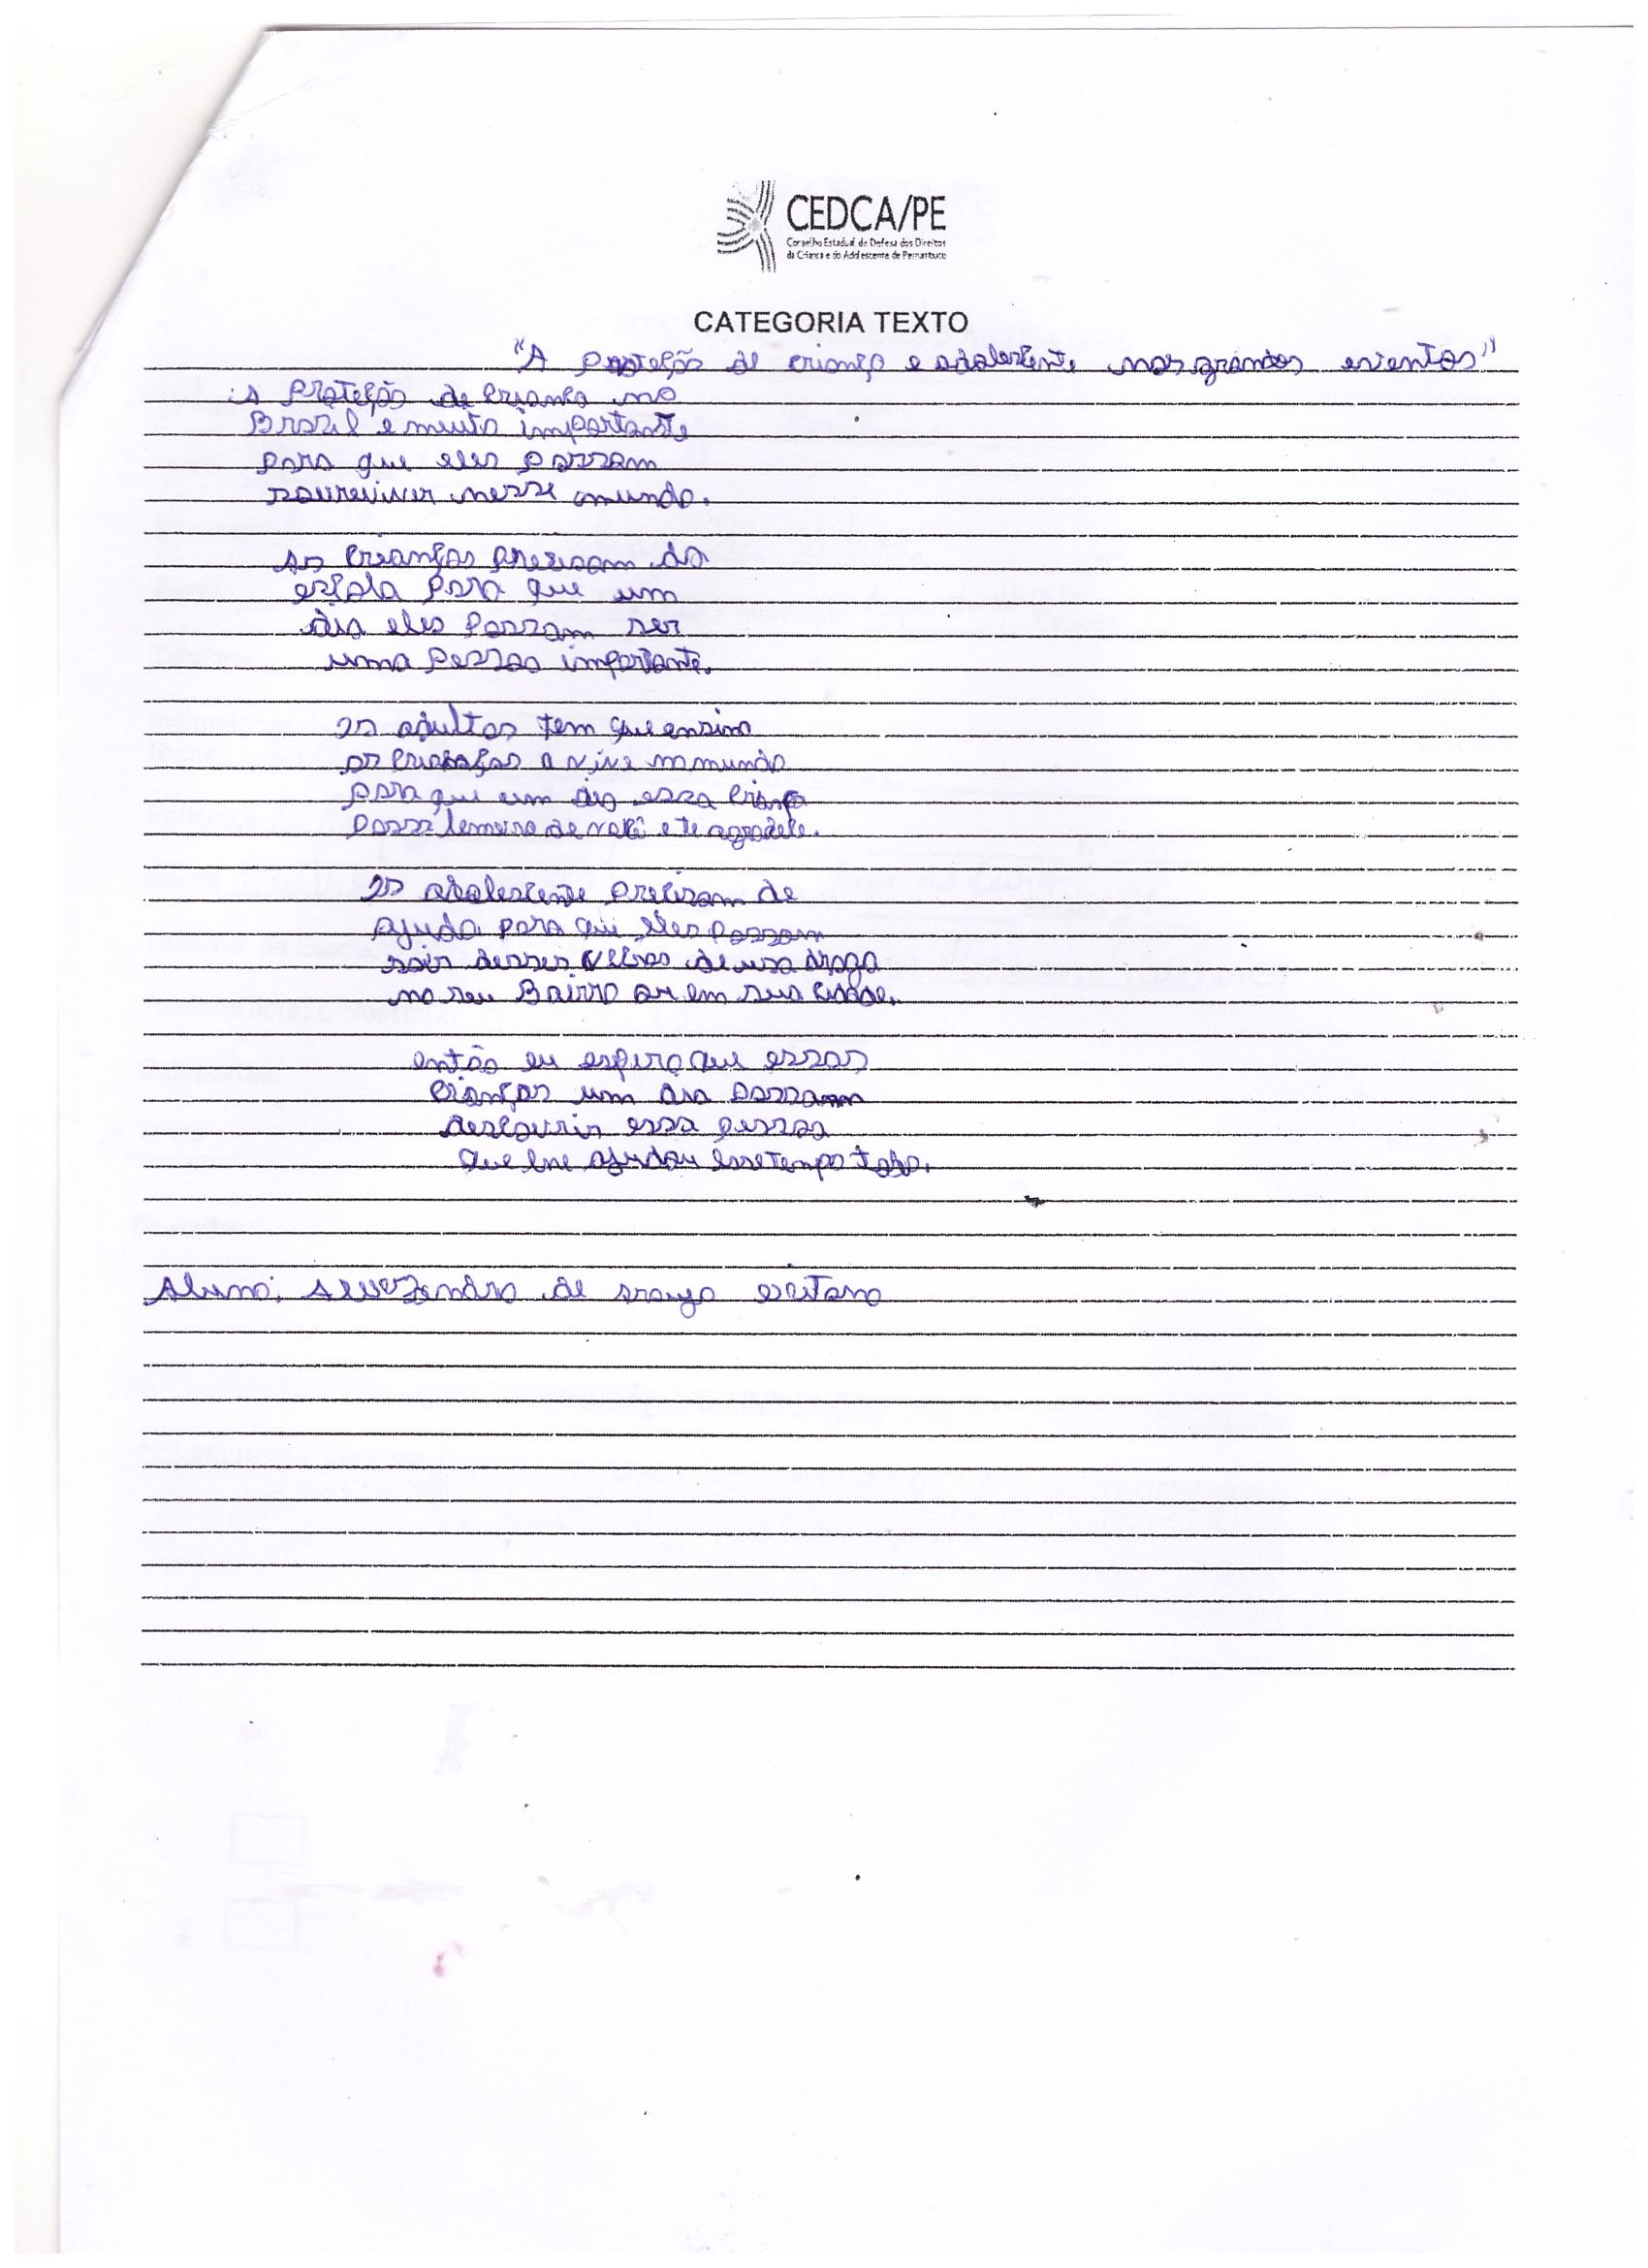 CEDCA/PE
Conselho Estadual de Defesa dos Direitos
da Criança e do Adolescente de Pernambuco
CATEGORIA TEXTO
"A proteção de criança e adolescente nos grandes eventos"
A proteção de criança no
Brasil e muito importante
para que eles possam
sobreviver nesse mundo.
As crianças presisam da
escola para que um
dia eles possam ser
uma pessoa importante.
Os adultos tem que ensina
as crianças a vive no mundo
para que um dia essa criança
possa lembra de você e te agradece.
Os adolescente precisam de
ajuda para que eles possam
sair desses de usa droga
no seu Bairro ou em sua cidade.
então eu espero que essas
crianças um dia possam
descobrir essa pessoa
que lhe ajudou esse tempo todo.
Aluno: de araujo